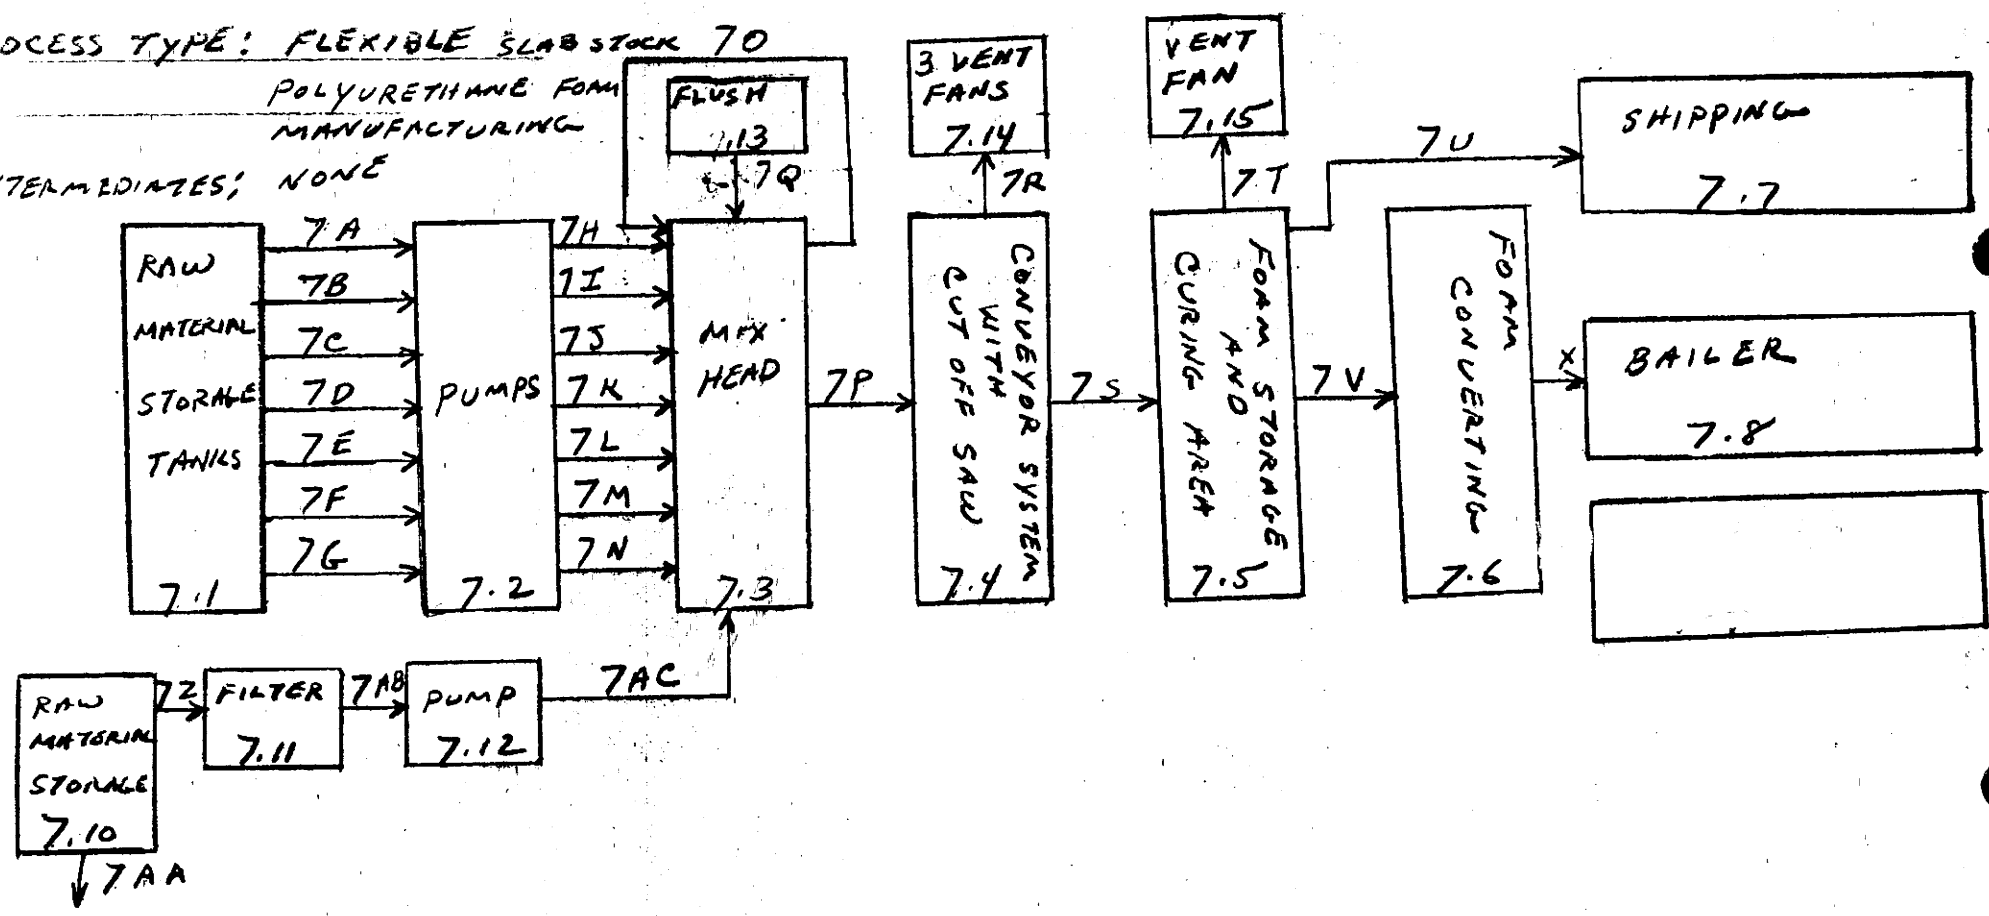 OCESS TYPE: FLEXIBLE SLABSTOCK
POLYURETHANE FOAM
MANUFACTURING
TERMEDIATES; NONE
7O
FLUSH
7.13
7Q
3 VENT
FANS
7.14
7R
VENT
FAN
7.15
7T
7U
SHIPPING
7.7
RAW
MATERIAL
STORAGE
TANKS
7.1
7A
7B
7C
7D
7E
7F
7G
PUMPS
7.2
7H
7I
7J
7K
7L
7M
7N
MIX
HEAD
7.3
7P
CONVEYOR SYSTEM
WITH
CUT OFF SAW
7.4
7S
FOAM STORAGE
AND
CURING AREA
7.5
7V
FOAM
CONVERTING
7.6
X
BAILER
7.8
RAW
MATERIAL
STORAGE
7.10
7Z
FILTER
7.11
7AB
PUMP
7.12
7AC
7AA